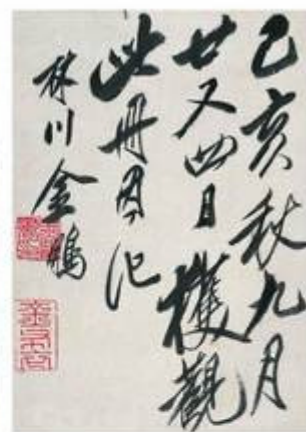 己亥秋九月
廿又四日獲觀
此冊因記
林川金鵬